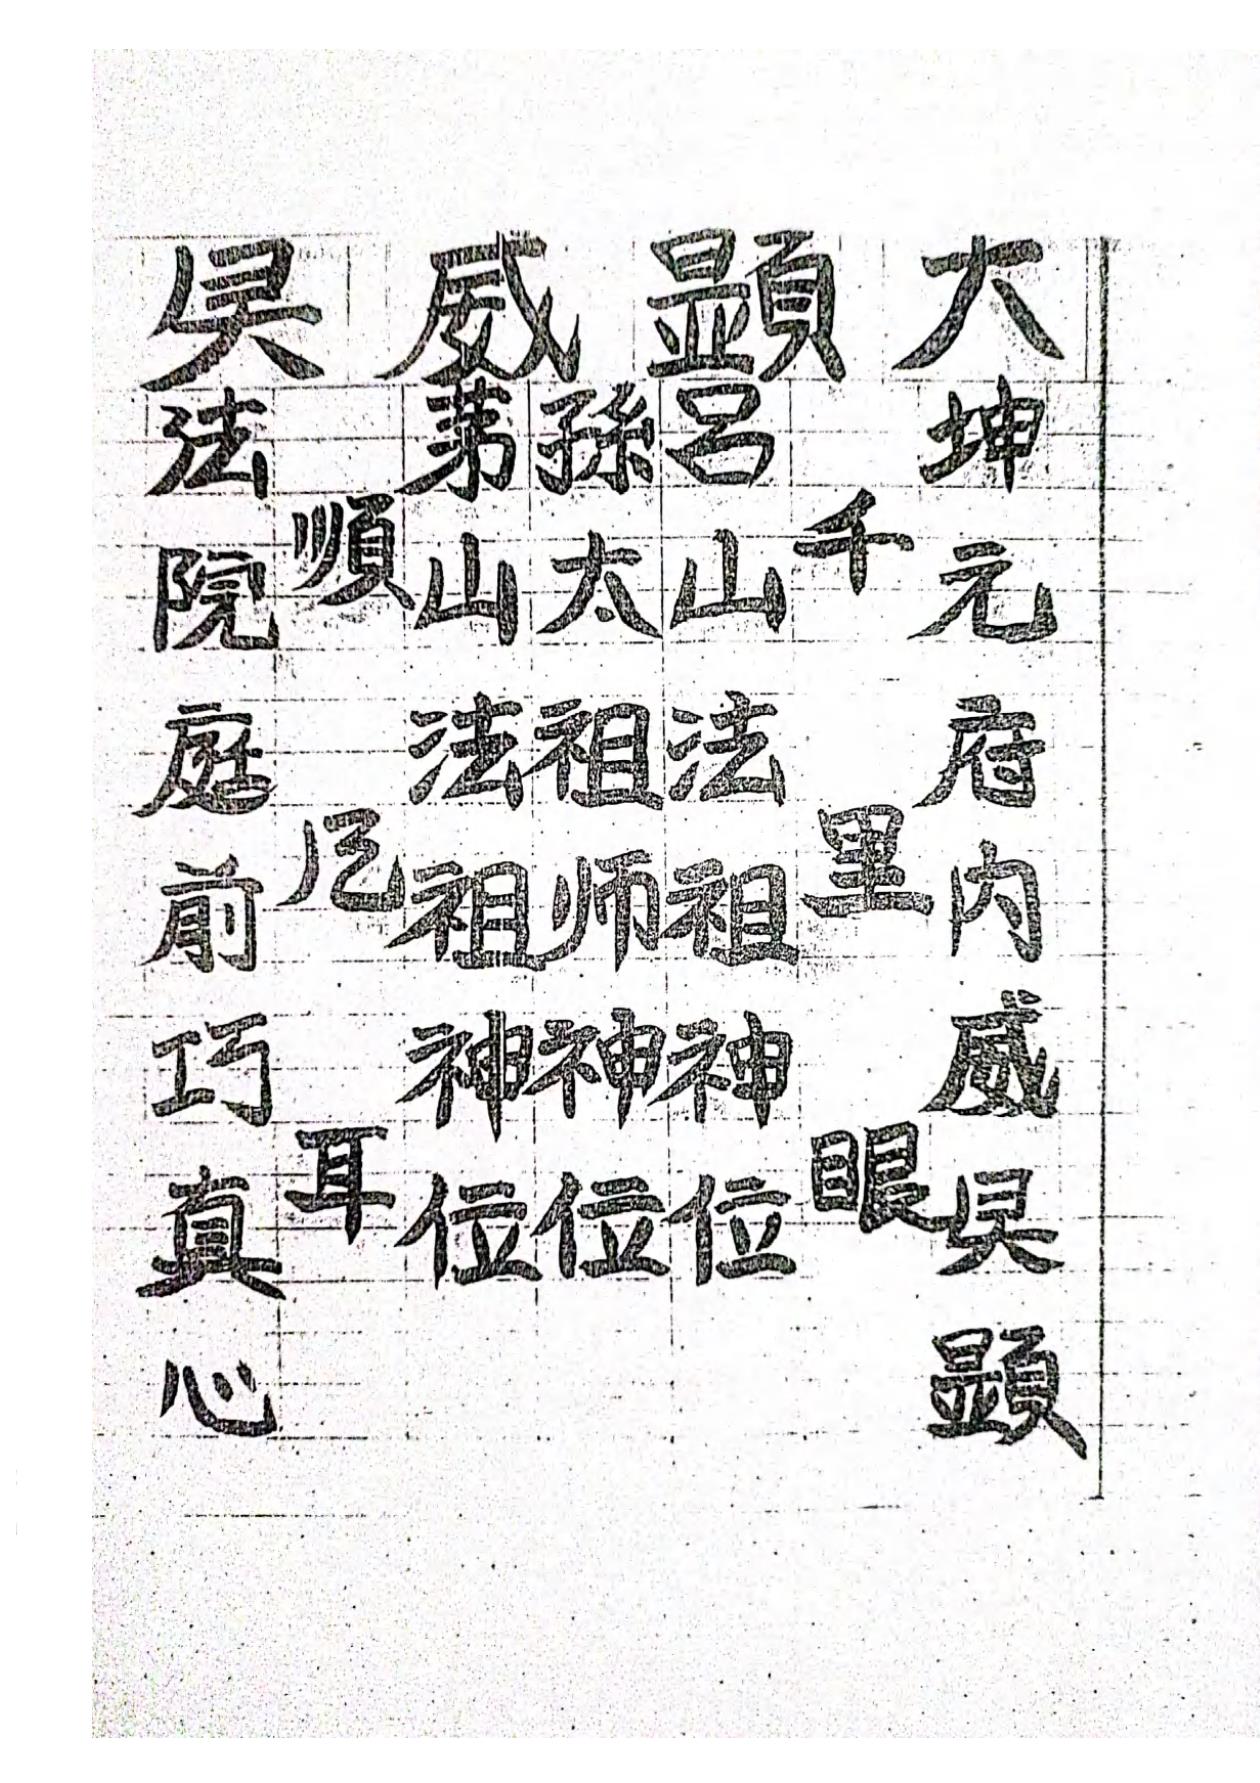 大顕威灵
坤元府内威灵顕
千里眼
呂山法祖神位
孫太祖师神位
苐山法祖神位
順凬耳
法院庭前巧真心